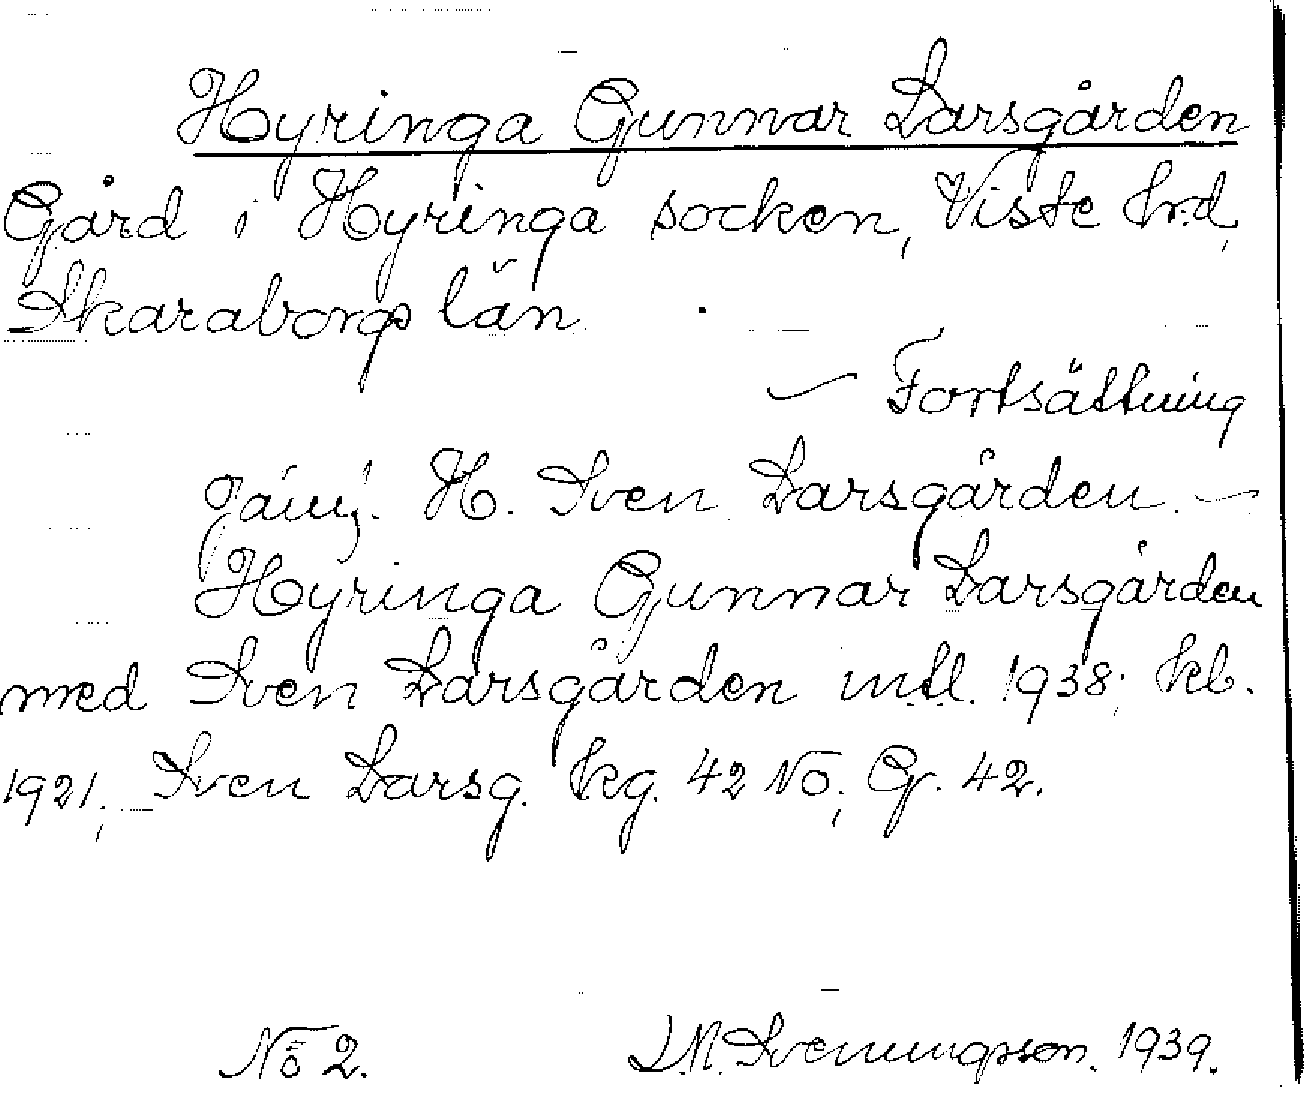 Hyringa Gunnar Larsgården
Gård i Hyringa socken, Viste hrd,
Skaraborgs län.
— Fortsättning
jämf. H. Sven Larsgården. —
Hyringa Gunnar Larsgården
med Sven Larsgården mtl. 1938; kb.
1921, Sven Larsg. kg. 42 NO; G. 42.
No 2. J.M. Svenungsson. 1939.